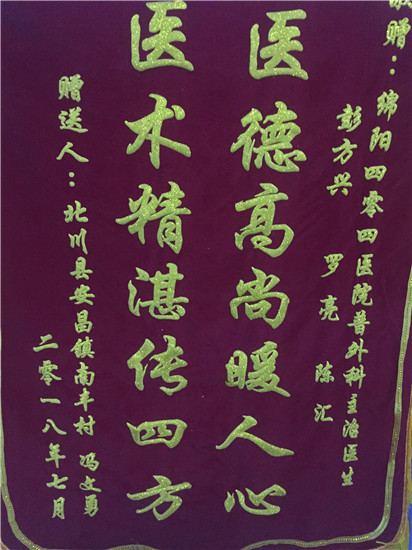 敬赠：绵阳四零四医院普外科主治医生
彭方兴 罗亮 陈汇
医德高尚暖人心
医术精湛传四方
赠送人：北川县安昌镇南丰村 冯文勇
二零一八年七月